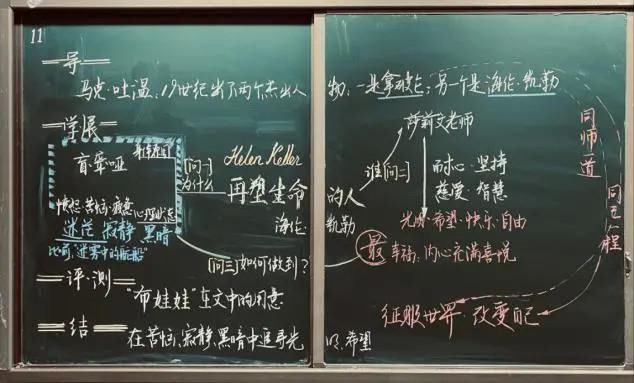 11
导
马克·吐温:19世纪出了两个杰出人物:一是拿破仑;另一个是海伦·凯勒
学·展
盲聋哑
愤怒·苦恼·疲惫 心理状态
迷茫 寂静 黑暗
比喻"迷雾中的航船"
[问一]
为什么
Helen Keller
再塑生命的人
海伦·凯勒
谁[问二]
莎莉文老师
耐心·坚持
慈爱·智慧
光明·希望·快乐·自由
最
幸福、内心充满喜悦
[问三]如何做到?
同师道
征服世界·改变自己
评·测
"布娃娃"在文中的用意
结
在苦恼、寂静、黑暗中追寻光明、希望